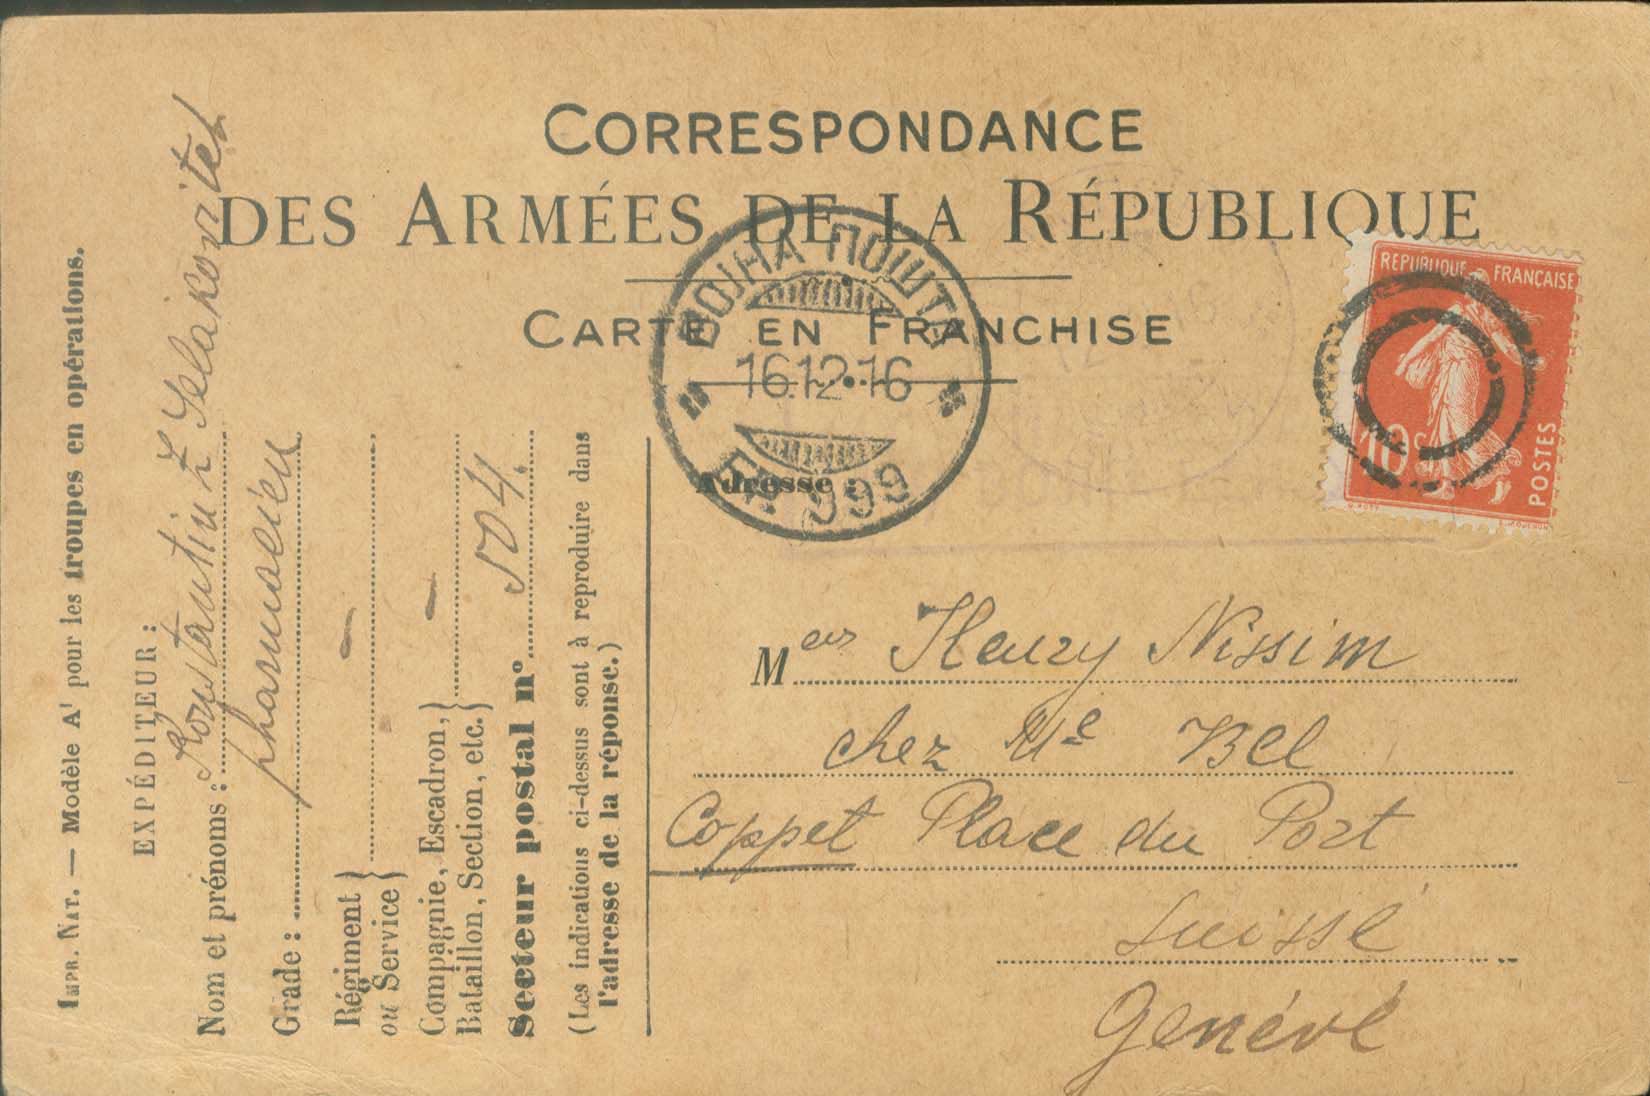 CORRESPONDANCE
DES ARMÉES DE LA RÉPUBLIQUE
CARTE EN FRANCHISE
RÉPUBLIQUE FRANÇAISE
10c
POSTES
ВОЈНА ПОШТА
16.12.16
Бр. 999
Adresse :
Mer Henry Nissim
chez Me Bel
Coppet Place du Port
Suissé
Genévé
IMPR. NAT. — Modèle A1 pour les troupes en opérations.
EXPÉDITEUR :
Nom et prénoms : Konstantin Z Selakovitch
Grade : pharmacien
Régiment
ou Service } —
Compagnie, Escadron,
Bataillon, Section, etc. } —
Secteur postal n° 504.
(Les indications ci-dessus sont à reproduire dans
l'adresse de la réponse.)